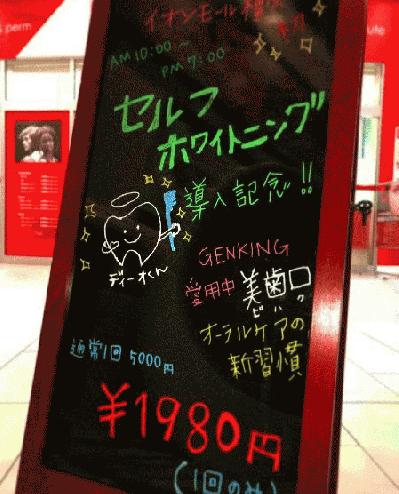 perm
イオンモール
AM 10:00〜
PM 7:00
セルフ
ホワイトニング
導入記念!!
ディーオくん
GENKING
愛用中 美歯口
ビハク
オーラルケアの
新習慣
通常1回 5000円
¥1980円
(1回のみ)